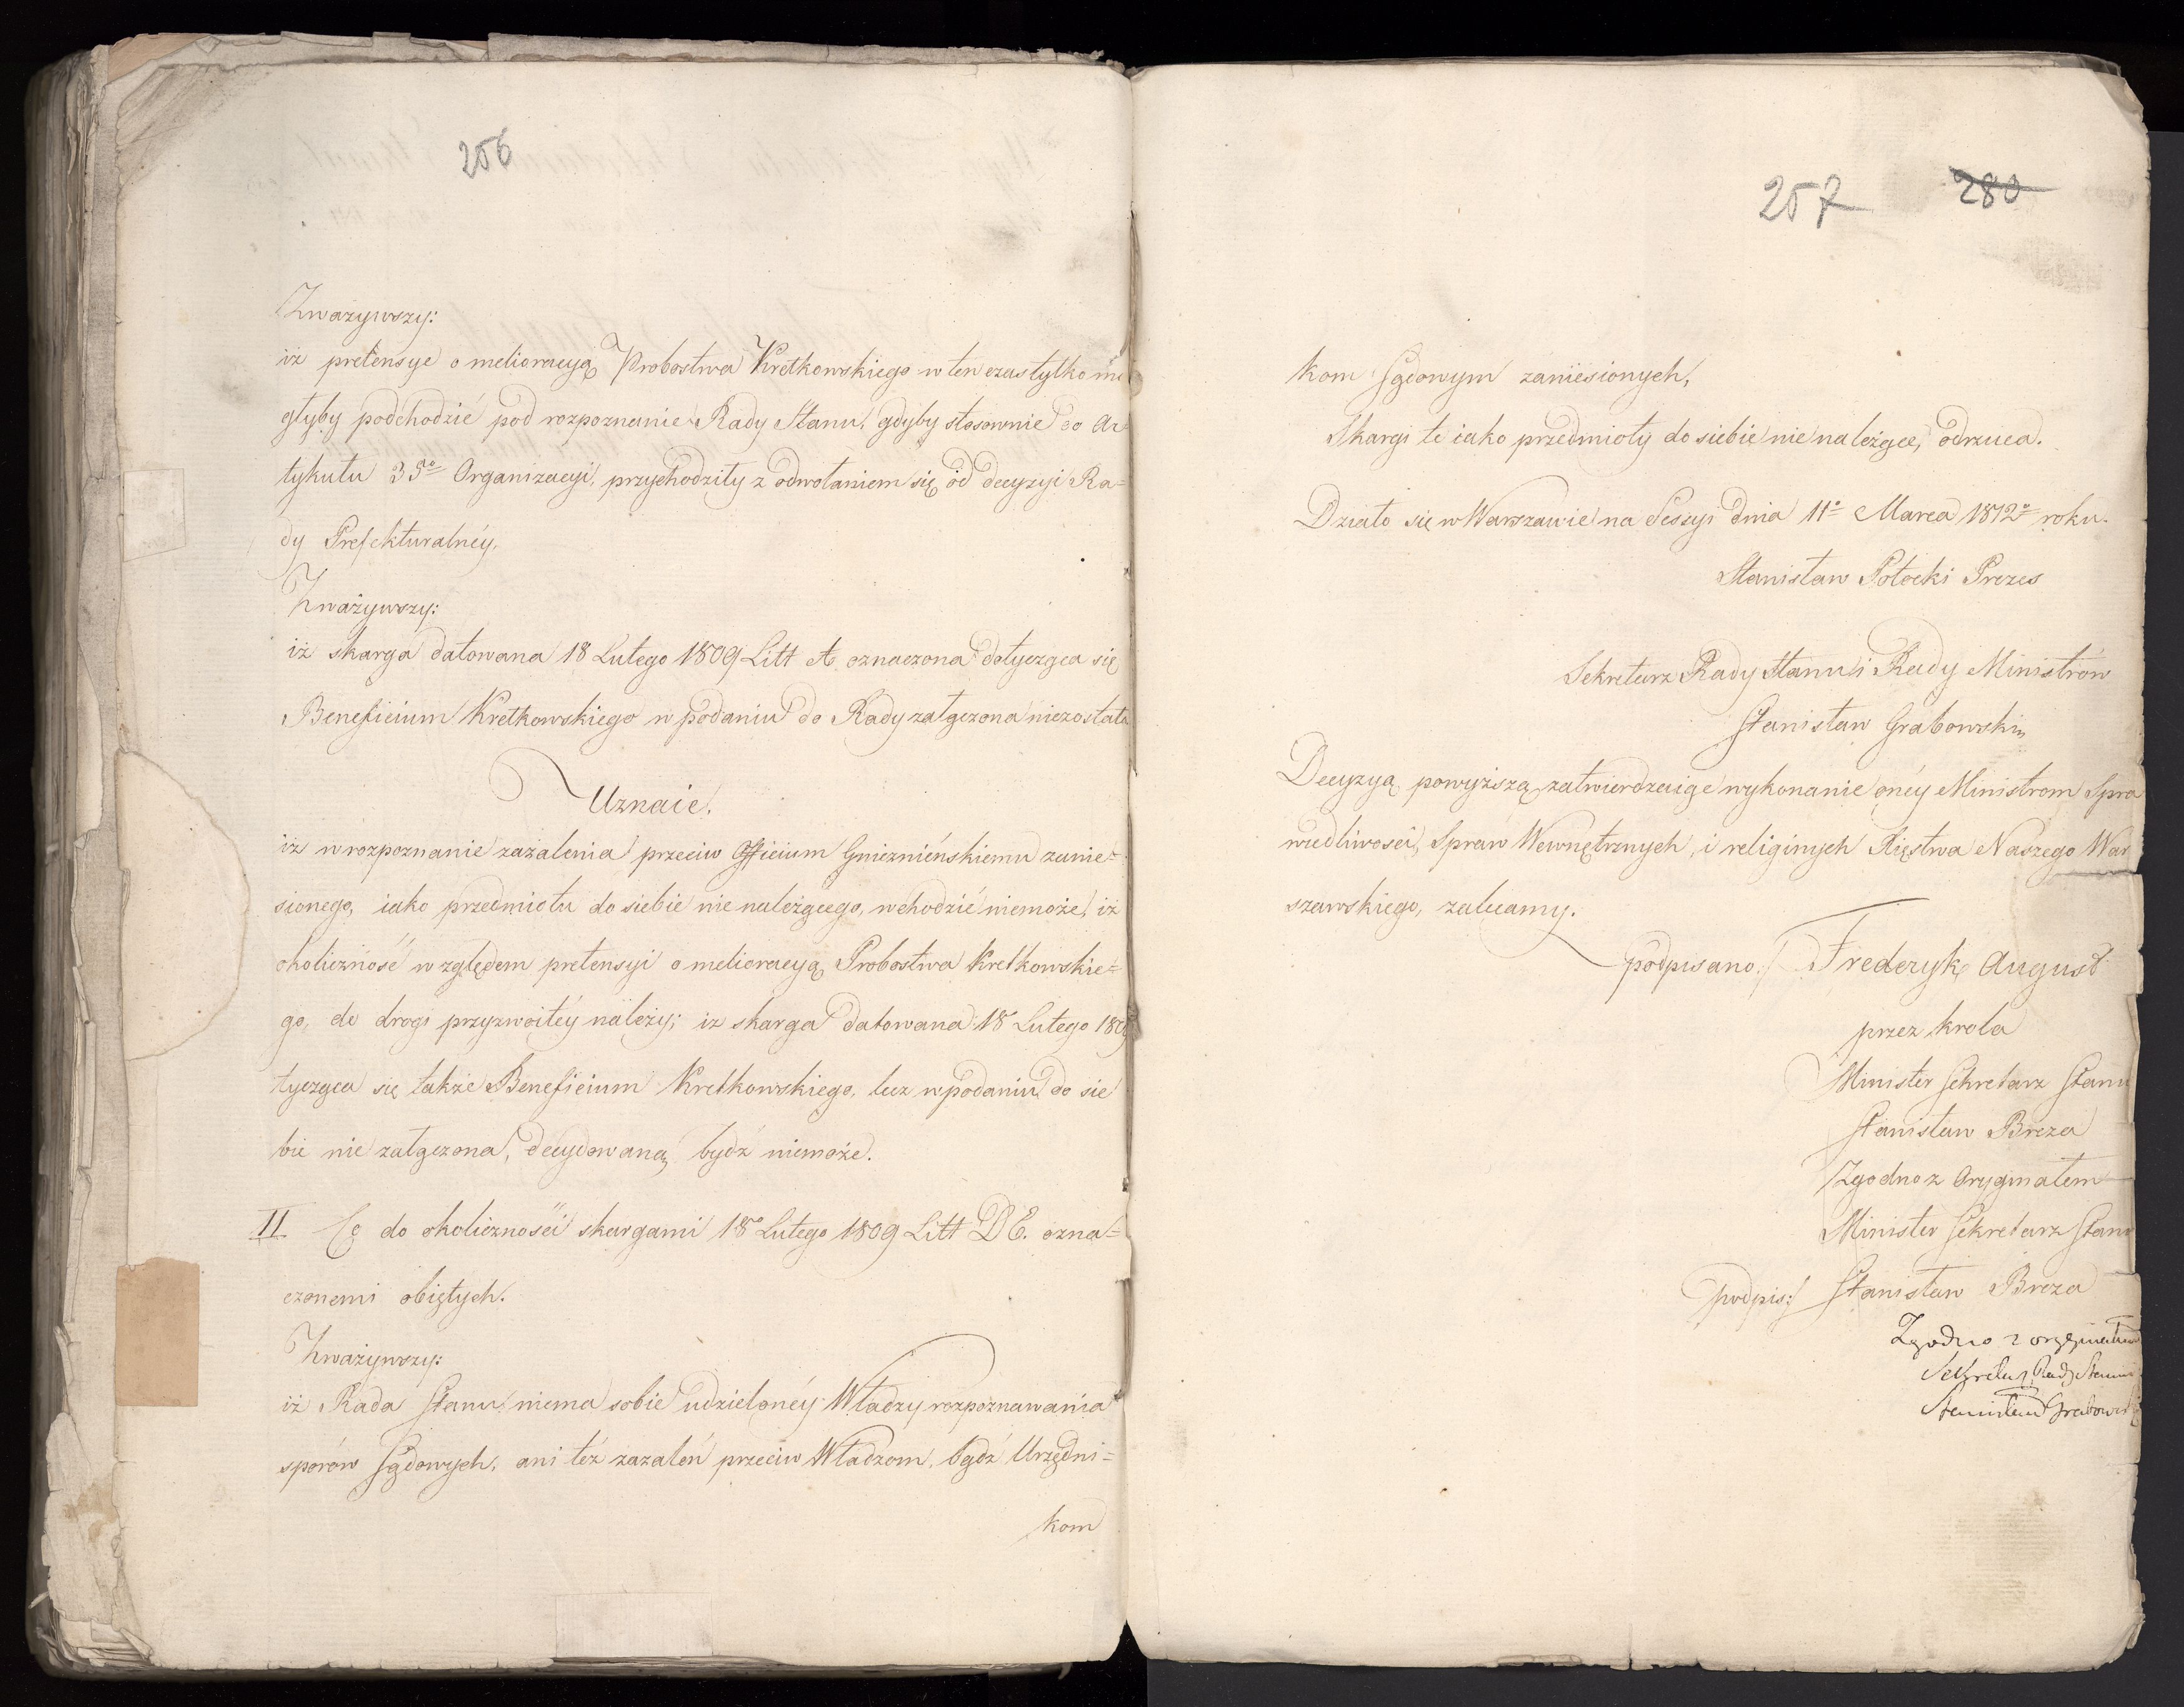 256
Zważywszy:
iż pretensye o melioracyą Probostwa Kretkowskiego w ten czas tylko mo
głyby podchodzić pod rozpoznanie Rady Stanu, gdyby stosownie do Ar
tykułu 35º Organizacyi, przychodziły z odwołaniem się od decyzyi Ra=
dy Prefekturalnéy.
Zważywszy:
iż skarga datowana 18 Lutego 1809 Litt A. oznaczona dotycząca się
Beneficium Kretkowskiego w podaniu do Rady załączona niezostała
Uznaie.
iż w rozpoznanie zażalenia przeciw Officium Gnieznieńskiemu zanie=
sionego, iako przedmiotu do siebie nie należącego, wchodzić niemoże, iż
okoliczność względem pretensyi o melioracyą Probostwa Kretkowskie=
go, do drogi przyzwoitéy należy; iż skarga datowana 18 Lutego 1809
tycząca się także Beneficium Kretkowskiego, lecz w podaniu do sie
bie nie załączona, decydowaną bydź niemoże.
II Co do okoliczności skargami 18º Lutego 1809 Litt D E. ozna=
czonemi obiętych.
Zważywszy:
iż Rada Stanu niema sobie udzielonéy Władzy rozpoznawania
sporów Sądowych, ani téż zażaleń przeciw Władzom, bądź Urzędni=
kom
257 280
kom Sądowym zaniesionych,
Skargi te iako przedmioty do siebie nie należące, odrzuca.
Działo się w Warszawie na Sessyi dnia 11º Marca 1812º roku.
Stanisław Potocki Prezes
Sekretarz Rady Stanu i Rady Ministrów
Stanisław Grabowski
Decyzyą powyższą zatwierdzaiąc wykonanie onéy Ministrom Spra
wiedliwości, Spraw Wewnętrznych, i religinych Xięstwa Naszego War
szawskiego, zalecamy.
podpisano/ Frederyk August
przez krola
Minister Sekretarz Stanu
Stanisław Breza
Zgodno z Oryginałem
Minister Sekretarz Stanu
podpis:/ Stanisław Breza
Zgodno z oryginałem
Sekretarz Rady Stanu
Stanisław Grabowski